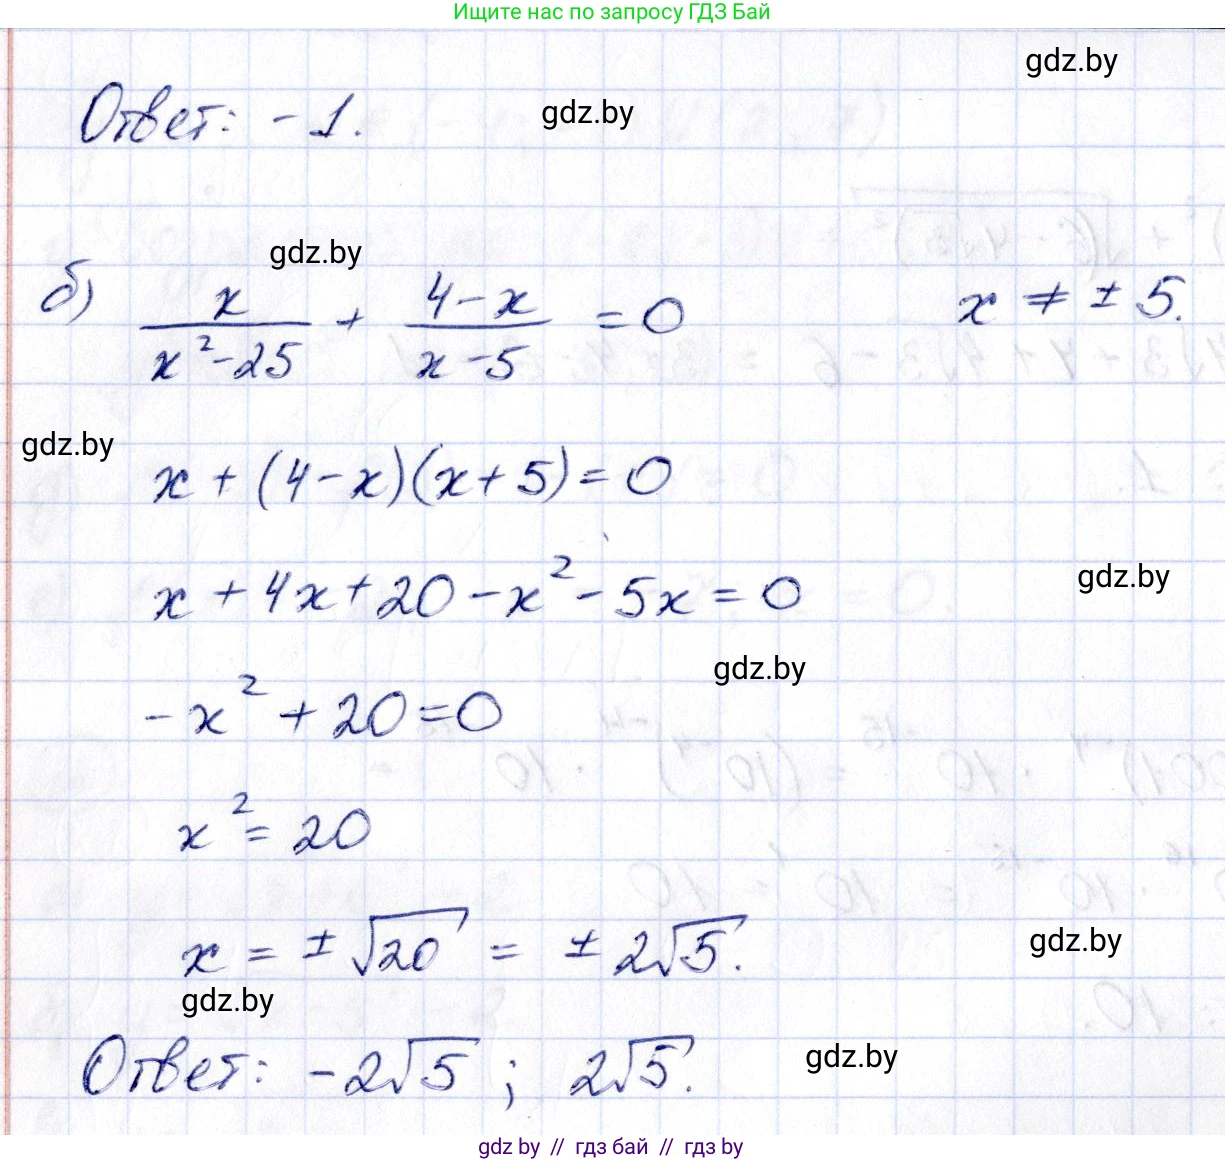 Ищите нас по запросу ГДЗ Бай
gdz.by
Ответ: -1.
gdz.by
gdz.by
б) x/(x²-25) + (4-x)/(x-5) = 0    x ≠ ± 5.
gdz.by
x + (4-x)(x+5) = 0
x + 4x + 20 - x² - 5x = 0
gdz.by
gdz.by
-x² + 20 = 0
x² = 20
x = ± √20 = ± 2√5.
gdz.by
gdz.by
Ответ: -2√5 ; 2√5.
gdz.by
gdz.by // гдз бай // gdz.by